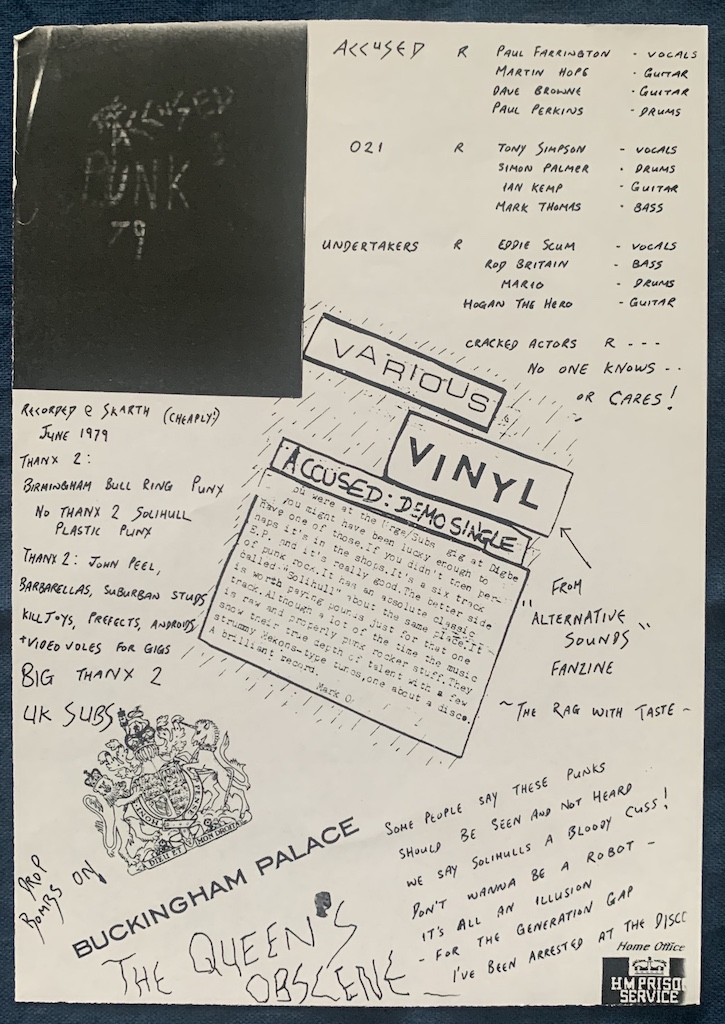 ACCUSED
PUNK
79
ACCUSED R PAUL FARRINGTON - VOCALS
MARTIN HOPE - GUITAR
DAVE BROWNE - GUITAR
PAUL PERKINS - DRUMS
021 R TONY SIMPSON - VOCALS
SIMON PALMER - DRUMS
IAN KEMP - GUITAR
MARK THOMAS - BASS
UNDERTAKERS R EDDIE SCUM - VOCALS
ROD BRITAIN - BASS
MARIO - DRUMS
HOGAN THE HERO - GUITAR
CRACKED ACTORS R ---
NO ONE KNOWS --
OR CARES!
RECORDED @ SKARTH (CHEAPLY!)
JUNE 1979
THANX 2:
BIRMINGHAM BULL RING PUNX
NO THANX 2 SOLIHULL
PLASTIC PUNX
THANX 2: JOHN PEEL,
BARBARELLAS, SUBURBAN STUDS,
KILLJOYS, PREFECTS, ANDROIDS
+ VIDEO VOLES FOR GIGS
BIG THANX 2
UK SUBS
VARIOUS
VINYL
ACCUSED: DEMO SINGLE
ou were at the Urge/Subs gig at Digbe
you might have been lucky enough to
have one of those.If you didn't then per-
haps it's in the shops.It's a six track
E.P. and it's really good.The better side
of punk rock.It has an absolute classic
called "Solihull" about the same place.It
is worth paying just for that one
track.Although a lot of the time the music
is raw and properly punk rocker stuff.They
show their true depth of talent with a few
strummy Mekons-type tunes,one about a disco.
A brilliant record.
Mark O
FROM
"ALTERNATIVE
SOUNDS"
FANZINE
~ THE RAG WITH TASTE ~
HONI
PENSE
DIEU ET MON DROIT
DROP
BOMBS ON
BUCKINGHAM PALACE
THE QUEEN'S
OBSCENE
SOME PEOPLE SAY THESE PUNKS
SHOULD BE SEEN AND NOT HEARD
WE SAY SOLIHULLS A BLOODY CUSS!
DON'T WANNA BE A ROBOT -
IT'S ALL AN ILLUSION
- FOR THE GENERATION GAP
- I'VE BEEN ARRESTED AT THE DISCO
Home Office
HM PRISO
SERVICE